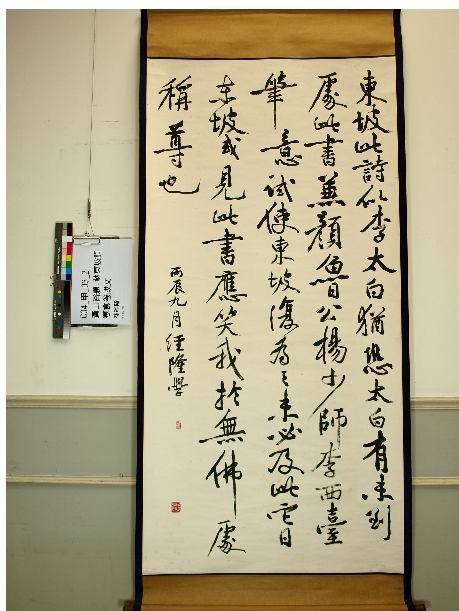 東坡此詩似李太白猶恐太白有未到
處此書兼顏魯公楊少師李西臺
筆意試使東坡復為之未必及此它日
东坡或見此書應笑我於無佛處
稱尊也
丙辰九月